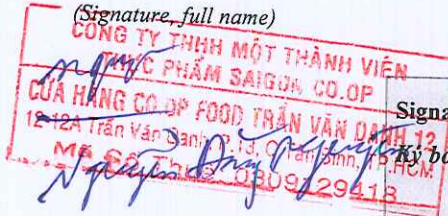 (Signature, full name)
CÔNG TY TNHH MỘT THÀNH VIÊN
THỰC PHẨM SAIGON CO.OP
CỬA HÀNG CO.OP FOOD TRẦN VĂN DANH 12
12-12A Trần Văn Danh, P.13, Q.Tân Bình, TP.HCM
Mã Số Thuế: 0309129418
Nguyễn
Signa
Ký bở